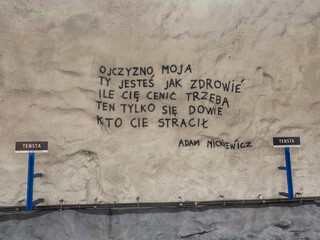 OJCZYZNO MOJA
TY JESTEŚ JAK ZDROWIE
ILE CIĘ CENIĆ TRZEBA
TEN TYLKO SIĘ DOWIE
KTO CIE STRACIŁ
ADAM MICKIEWICZ
TENSTA
TENSTA